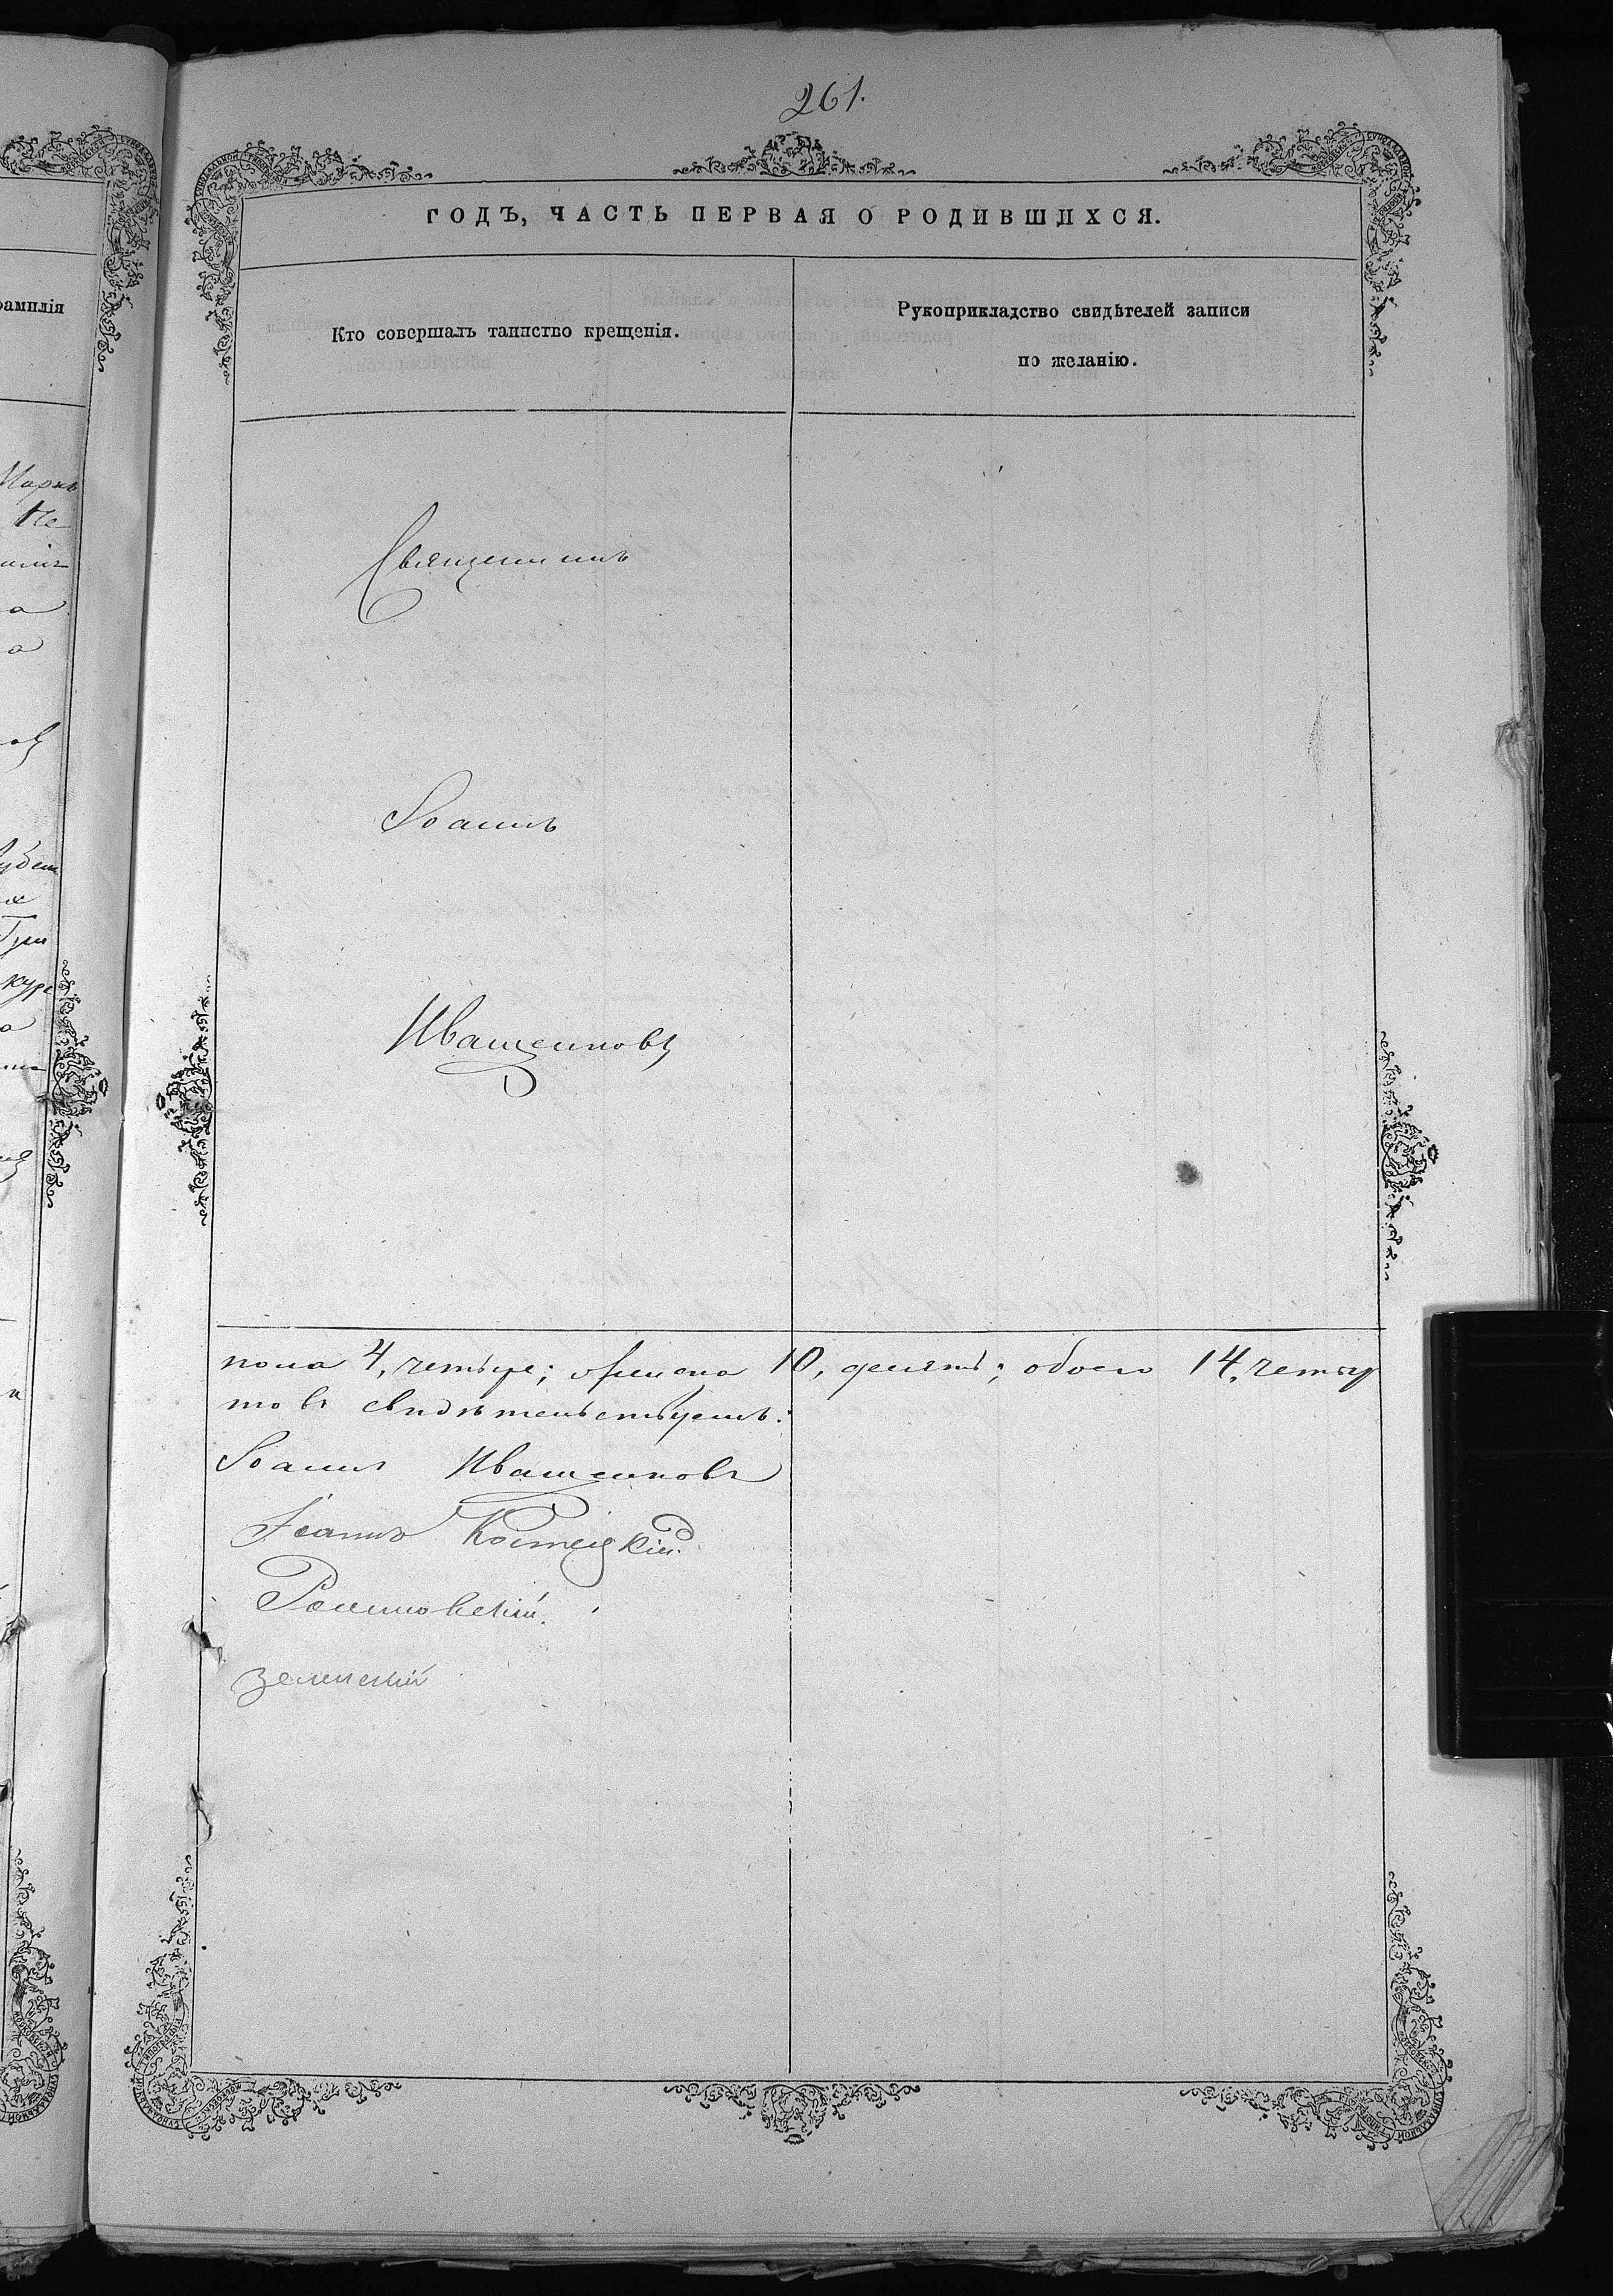 261.
ГОДЪ, ЧАСТЬ ПЕРВАЯ О РОДИВШИХСЯ.
амилія
Кто совершалъ таинство крещенія.
Рукоприкладство свидѣтелей записи
по желанію.
Священникъ
Іоаннъ
Иващенковъ
пола 4, четыре; женска 10, десять; обоего 14, четыр
товъ свидѣтельствуемъ:
Іоаннъ Иващенковъ
Іоаннъ Костецкій.
Зеленскій